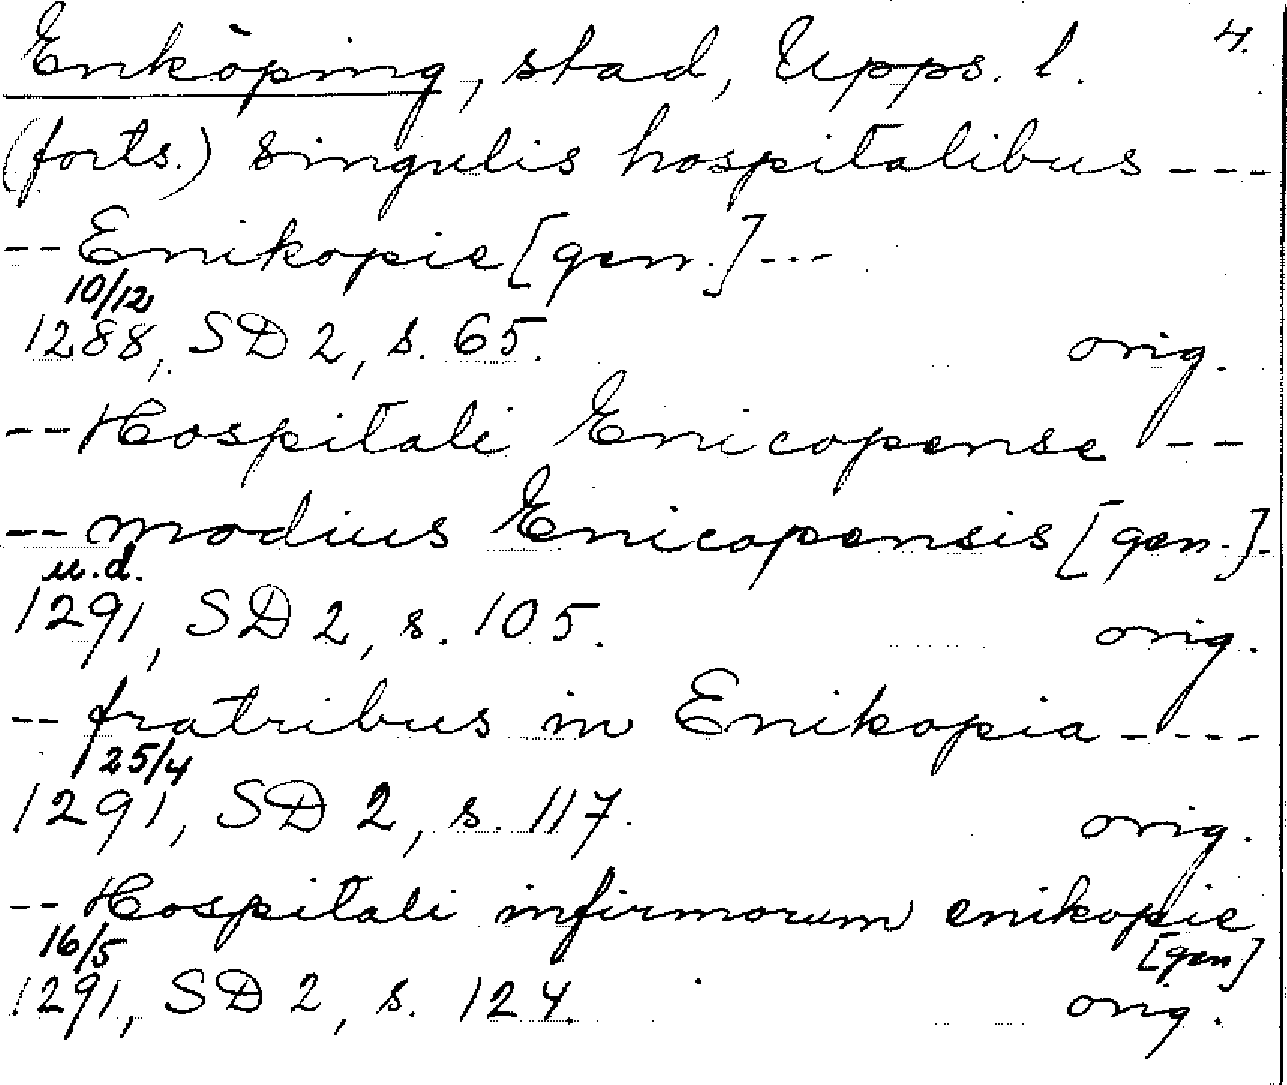 Enköping, stad, Upps. l. 4.
(forts.) singulis hospitalibus ---
-- Enikopie [gen.] ---
10/12
1288, SD 2, s. 65. orig.
-- Hospitali Enicopense --
-- modius Enicopensis [gen.] -
u.d.
1291, SD 2, s. 105. orig.
-- fratribus in Enikopia ----
25/4
1291, SD 2, s. 117. orig.
-- Hospitali infirmorum enikopie
16/5 [gen]
1291, SD 2, s. 124. orig.